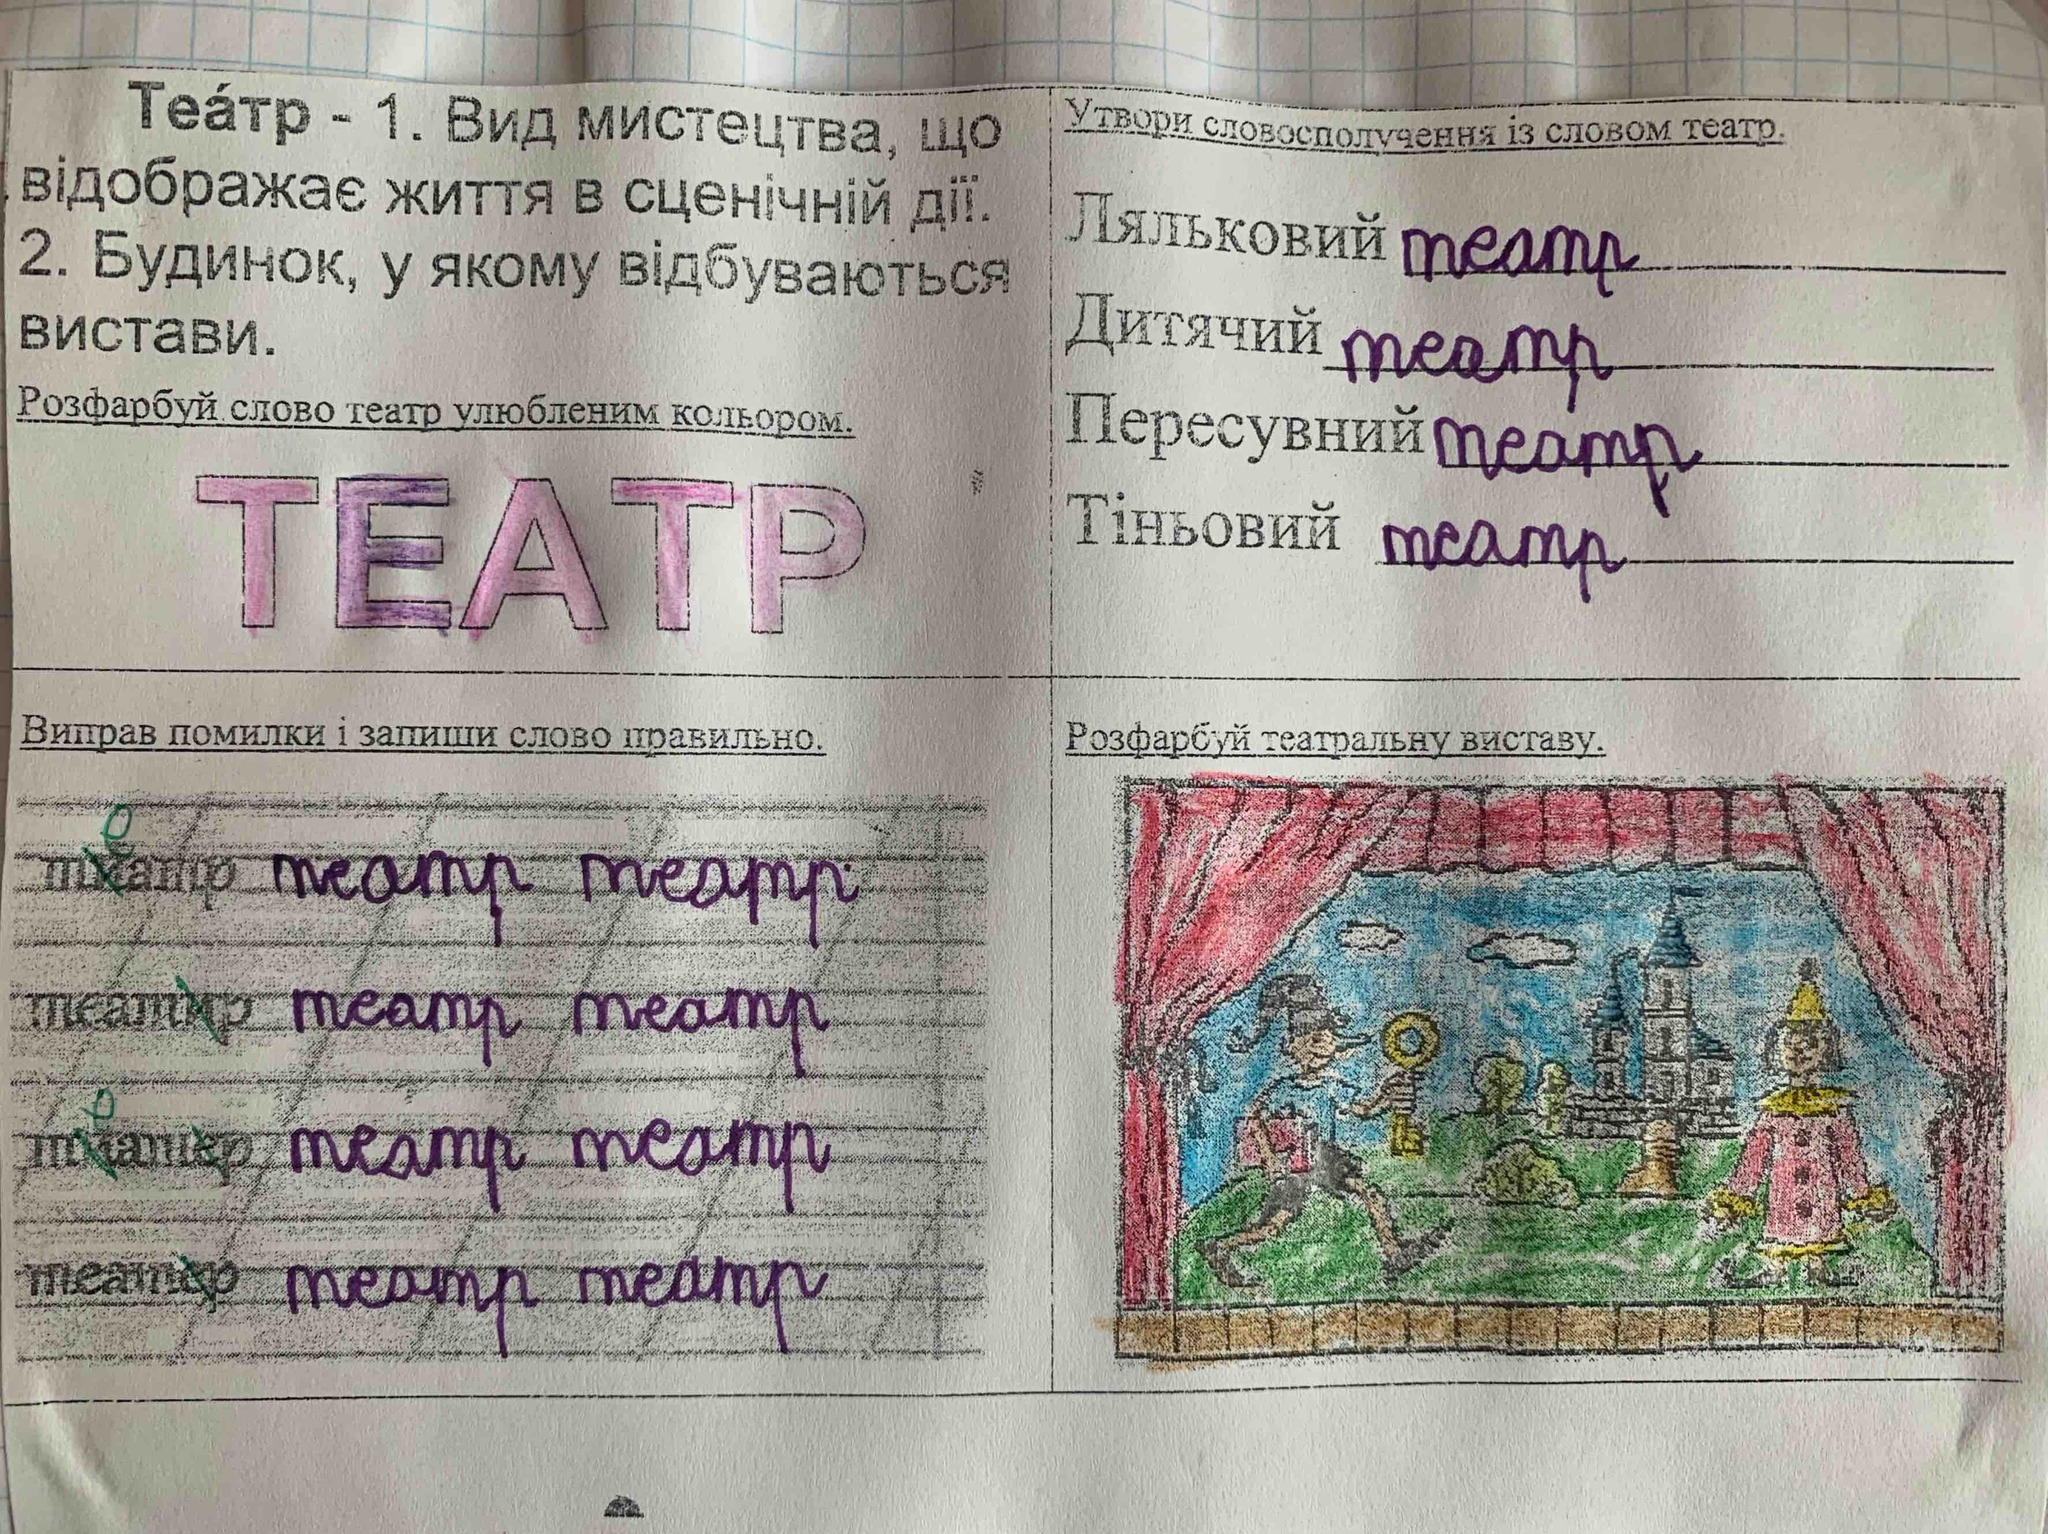 Теа́тр - 1. Вид мистецтва, що
відображає життя в сценічній дії.
2. Будинок, у якому відбуваються
вистави.
Розфарбуй слово театр улюбленим кольором.
ТЕАТР
Утвори словосполучення із словом театр.
Ляльковий театр
Дитячий театр
Пересувний театр
Тіньовий театр
Виправ помилки і запиши слово правильно.
е
тиатр театр театр
театир театр театр
е
тиатер театр театр
театер театр театр
Розфарбуй театральну виставу.